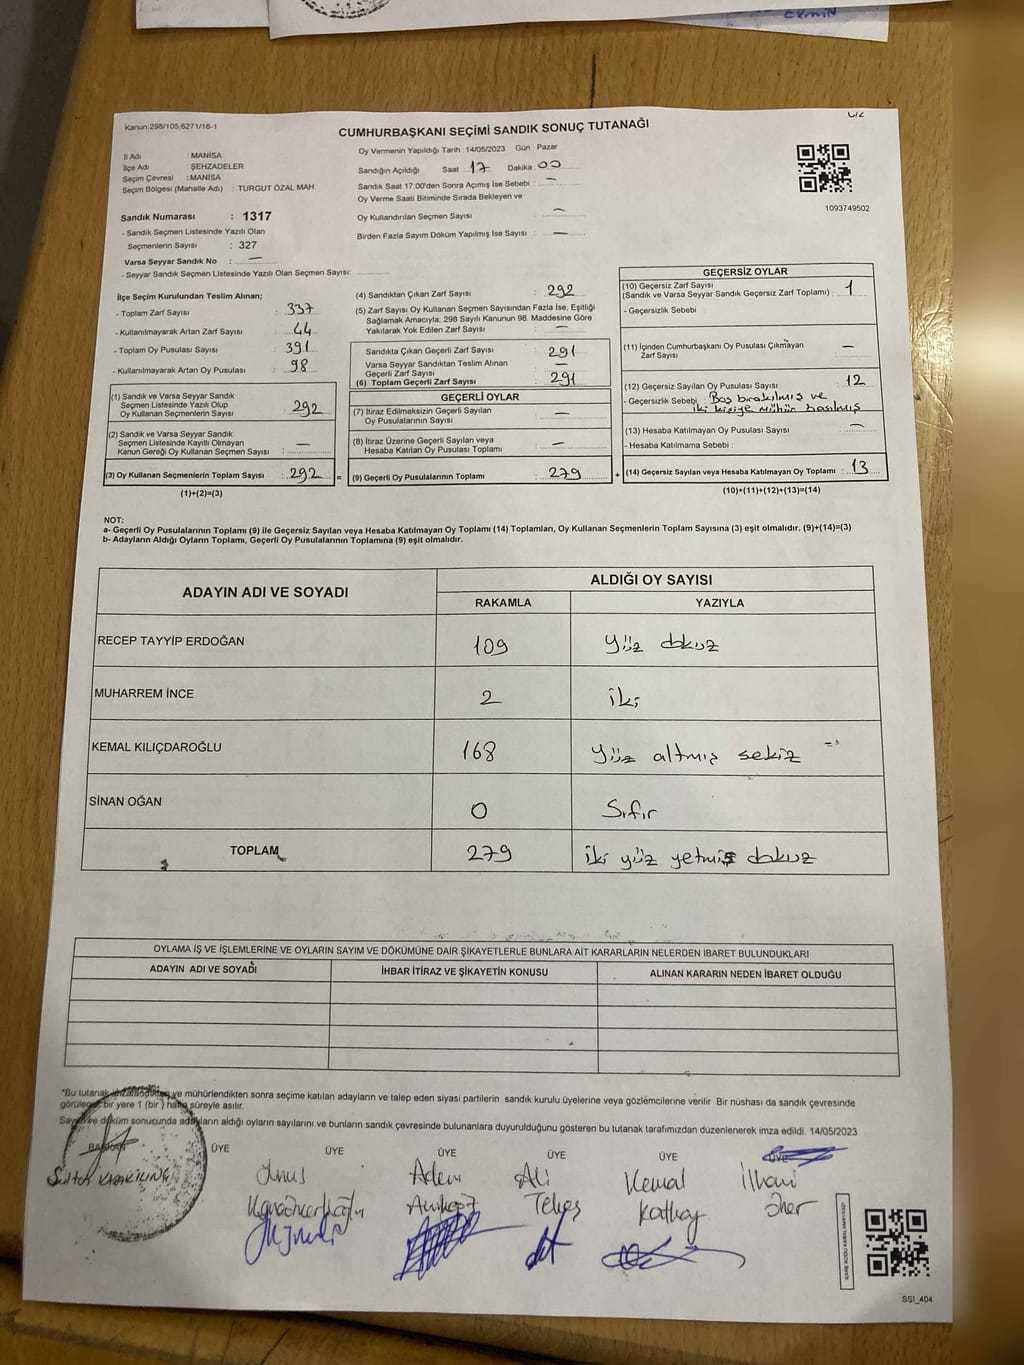 ERMİN
Kanun:298/105;6271/18-1
CUMHURBAŞKANI SEÇİMİ SANDIK SONUÇ TUTANAĞI
İl Adı : MANİSA
İlçe Adı : ŞEHZADELER
Seçim Çevresi : MANİSA
Seçim Bölgesi (Mahalle Adı) : TURGUT ÖZAL MAH.
Oy Vermenin Yapıldığı Tarih : 14/05/2023 Gün : Pazar
Sandığın Açıldığı Saat 17 Dakika 00
Sandık Saat 17:00'den Sonra Açımış İse Sebebi : —
Oy Verme Saati Bitiminde Sırada Bekleyen ve
Oy Kullandırılan Seçmen Sayısı —
Birden Fazla Sayım Döküm Yapılmış İse Sayısı : —
1093749502
Sandık Numarası : 1317
- Sandık Seçmen Listesinde Yazılı Olan
Seçmenlerin Sayısı : 327
Varsa Seyyar Sandık No : —
- Seyyar Sandık Seçmen Listesinde Yazılı Olan Seçmen Sayısı:
İlçe Seçim Kurulundan Teslim Alınan;
- Toplam Zarf Sayısı : 337
- Kullanılmayarak Artan Zarf Sayısı : 44
- Toplam Oy Pusulası Sayısı : 391
- Kullanılmayarak Artan Oy Pusulası : 98
(1) Sandık ve Varsa Seyyar Sandık
Seçmen Listesinde Yazılı Olup
Oy Kullanan Seçmenlerin Sayısı : 292
(2) Sandık ve Varsa Seyyar Sandık
Seçmen Listesinde Kayıtlı Olmayan
Kanun Gereği Oy Kullanan Seçmen Sayısı : —
(3) Oy Kullanan Seçmenlerin Toplam Sayısı : 292 =
(1)+(2)=(3)
(4) Sandıktan Çıkan Zarf Sayısı : 292
(5) Zarf Sayısı Oy Kullanan Seçmen Sayısından Fazla İse, Eşitliği
Sağlamak Amacıyla; 298 Sayılı Kanunun 98. Maddesine Göre
Yakılarak Yok Edilen Zarf Sayısı : —
Sandıkta Çıkan Geçerli Zarf Sayısı : 291
Varsa Seyyar Sandıktan Teslim Alınan
Geçerli Zarf Sayısı : —
(6) Toplam Geçerli Zarf Sayısı : 291
GEÇERLİ OYLAR
(7) İtiraz Edilmeksizin Geçerli Sayılan
Oy Pusulalarının Sayısı : —
(8) İtiraz Üzerine Geçerli Sayılan veya
Hesaba Katılan Oy Pusulası Toplamı : —
(9) Geçerli Oy Pusulalarının Toplamı : 279 +
GEÇERSİZ OYLAR
(10) Geçersiz Zarf Sayısı
(Sandık ve Varsa Seyyar Sandık Geçersiz Zarf Toplamı) : 1
- Geçersizlik Sebebi :
(11) İçinden Cumhurbaşkanı Oy Pusulası Çıkmayan
Zarf Sayısı : —
(12) Geçersiz Sayılan Oy Pusulası Sayısı : 12
- Geçersizlik Sebebi : Boş bırakılmış ve
iki kişiye mühür basılmış
(13) Hesaba Katılmayan Oy Pusulası Sayısı : —
- Hesaba Katılmama Sebebi :
(14) Geçersiz Sayılan veya Hesaba Katılmayan Oy Toplamı : 13
(10)+(11)+(12)+(13)=(14)
NOT:
a- Geçerli Oy Pusulalarının Toplamı (9) ile Geçersiz Sayılan veya Hesaba Katılmayan Oy Toplamı (14) Toplamları, Oy Kullanan Seçmenlerin Toplam Sayısına (3) eşit olmalıdır. (9)+(14)=(3)
b- Adayların Aldığı Oyların Toplamı, Geçerli Oy Pusulalarının Toplamına (9) eşit olmalıdır.
ADAYIN ADI VE SOYADI ALDIĞI OY SAYISI
RAKAMLA YAZIYLA
RECEP TAYYİP ERDOĞAN 109 Yüz dokuz
MUHARREM İNCE 2 iki
KEMAL KILIÇDAROĞLU 168 Yüz altmış sekiz
SİNAN OĞAN 0 Sıfır
TOPLAM 279 iki yüz yetmiş dokuz
OYLAMA İŞ VE İŞLEMLERİNE VE OYLARIN SAYIM VE DÖKÜMÜNE DAİR ŞİKAYETLERLE BUNLARA AİT KARARLARIN NELERDEN İBARET BULUNDUKLARI
ADAYIN ADI VE SOYADI İHBAR İTİRAZ VE ŞİKAYETİN KONUSU ALINAN KARARIN NEDEN İBARET OLDUĞU
*Bu tutanak imzalandıktan ve mühürlendikten sonra seçime katılan adayların ve talep eden siyasi partilerin sandık kurulu üyelerine veya gözlemcilerine verilir Bir nüshası da sandık çevresinde
görülegelen bir yere 1 (bir) hafta süreyle asılır.
Sayım ve döküm sonucunda adayların aldığı oyların sayılarını ve bunların sandık çevresinde bulunanlara duyurulduğunu gösteren bu tutanak tarafımızdan düzenlenerek imza edildi. 14/05/2023
BAŞKAN ÜYE ÜYE ÜYE ÜYE ÜYE ÜYE
Yunus Adem Ali Kemal İlhami
Tekeş
KARE KODU KARALAMAYINIZ!
SSI_404